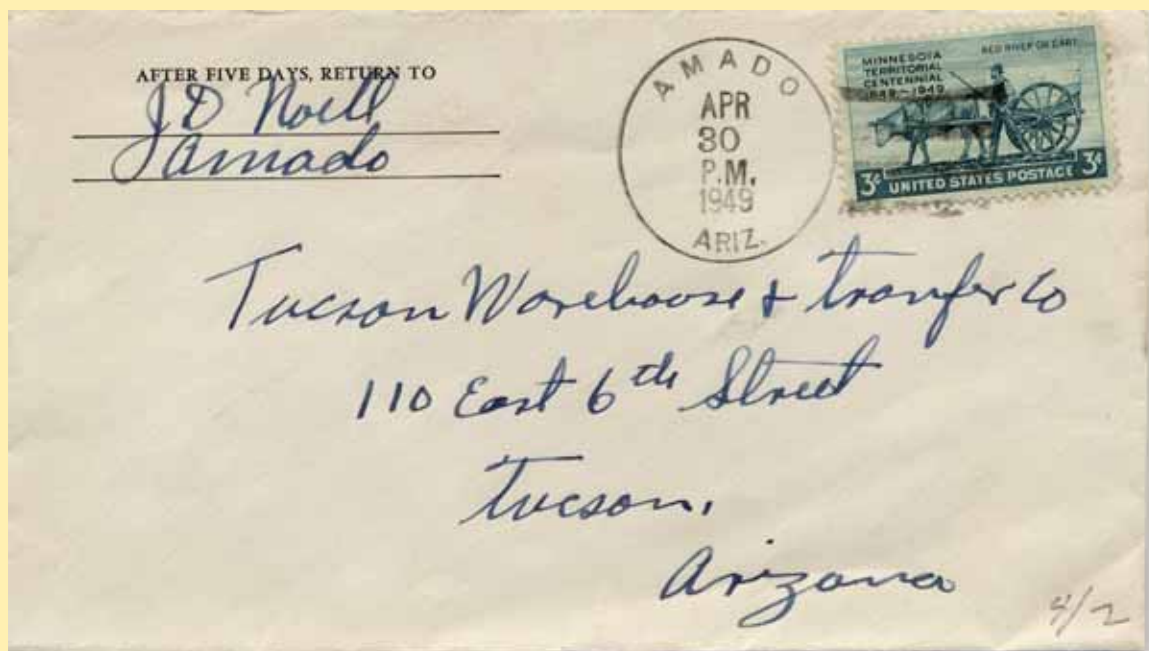 AFTER FIVE DAYS, RETURN TO
J D Noell
Amado
AMADO
APR
30
P.M.
1949
ARIZ.
MINNESOTA
TERRITORIAL
CENTENNIAL
1849-1949
RED RIVER OX CART
3¢ UNITED STATES POSTAGE 3¢
Tucson Warehouse & tranfer Co
110 East 6th Street
Tucson,
Arizona
4/2